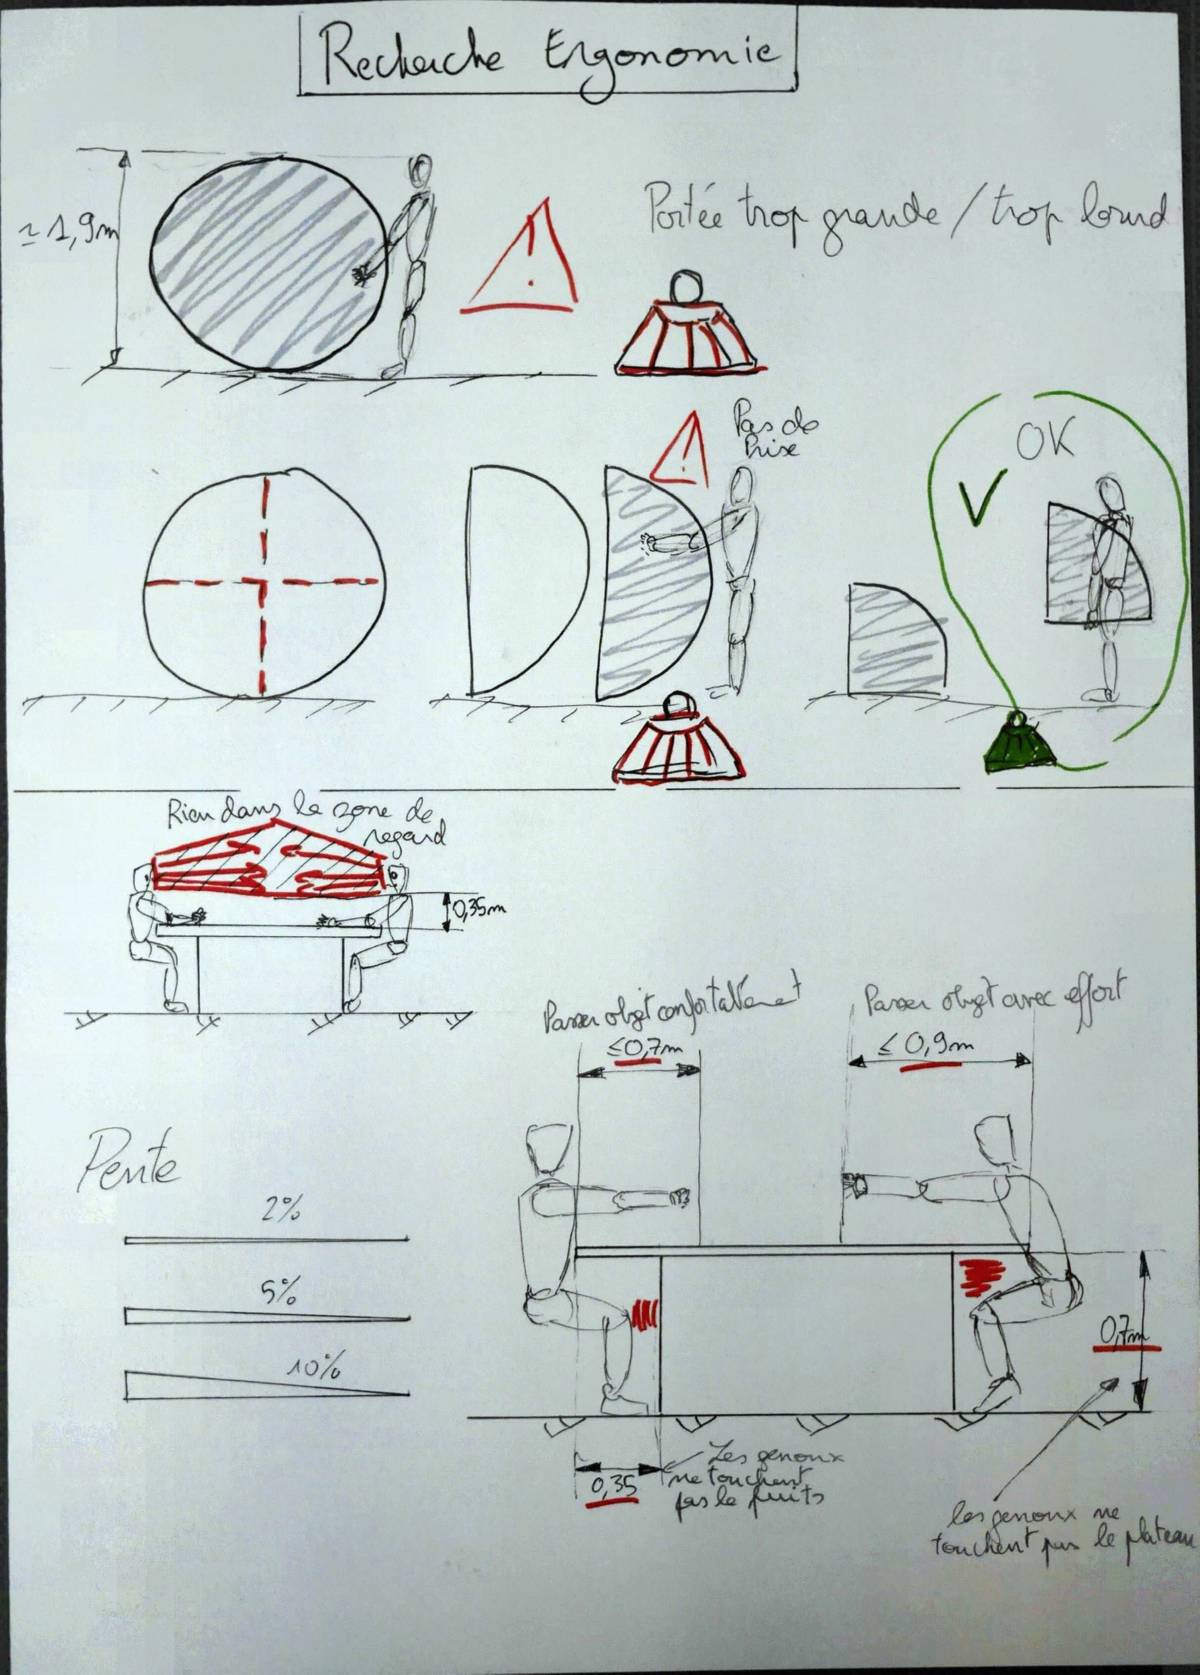 Recherche Ergonomie
≃ 1,9m
!
Portée trop grande / trop lourd
!
Pas de
Prise
OK
Rien dans la zone de
regard
0,35m
Passer objet confortablement
≤0,7m
Passer objet avec effort
≤ 0,9m
Pente
2%
5%
10%
0,7m
0,35
Les genoux
ne touchent
pas le puits
les genoux ne
touchent pas le plateau